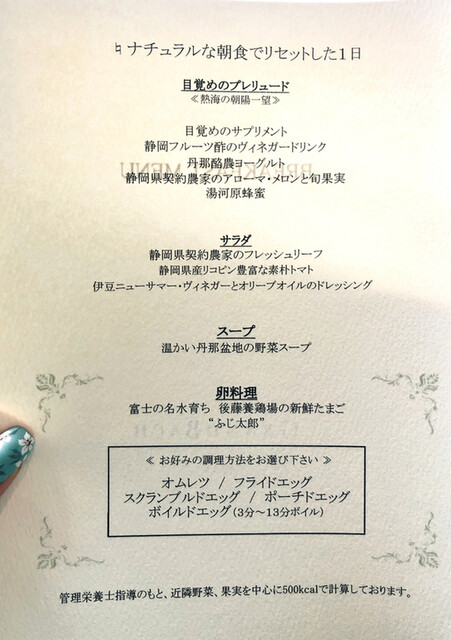 ♮ナチュラルな朝食でリセットした1日
目覚めのプレリュード
≪熱海の朝陽一望≫
目覚めのサプリメント
静岡フルーツ酢のヴィネガードリンク
丹那酪農ヨーグルト
静岡県契約農家のアローマ・メロンと旬果実
湯河原蜂蜜
サラダ
静岡県契約農家のフレッシュリーフ
静岡県産リコピン豊富な素朴トマト
伊豆ニューサマー・ヴィネガーとオリーブオイルのドレッシング
スープ
温かい丹那盆地の野菜スープ
卵料理
富士の名水育ち 後藤養鶏場の新鮮たまご
“ふじ太郎”
≪ お好みの調理方法をお選び下さい ≫
オムレツ / フライドエッグ
スクランブルドエッグ / ポーチドエッグ
ボイルドエッグ(3分～13分ボイル)
管理栄養士指導のもと、近隣野菜、果実を中心に500kcalで計算しております。